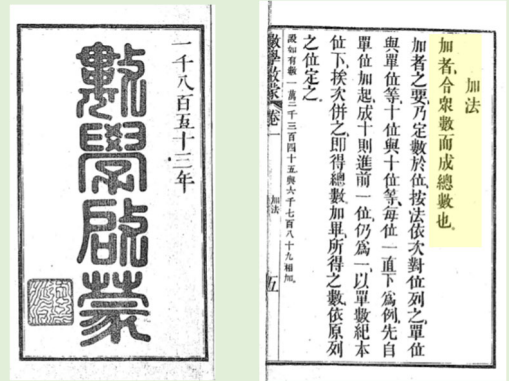 一千八百五十三年
數學啟蒙
加法
加者,合衆數而成總數也.
加者之要,乃定數於位,按法依次對位列之,單位
與單位等,十位與十位等,每位一直下爲例,先自
單位加起,成十則進前一位,仍爲一,以單數紀本
位下,挨次併之,即得總數,加畢,所得之數依原列
之位定之.
設如有數一萬二千三百四十五與六千七百八十九相加.
數學啟蒙 卷一 加法 五